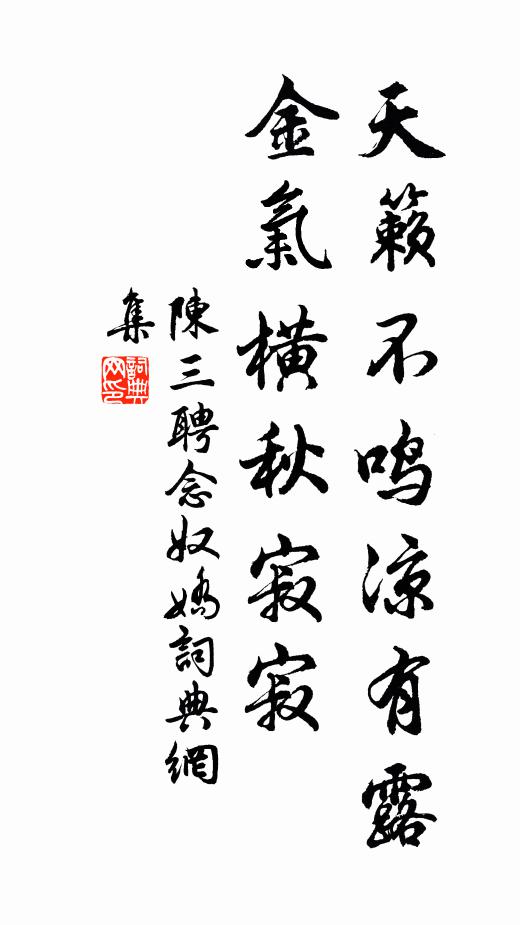 天籟不鸣凉有露
金氣橫秋寂寂
陳三聘念奴嬌詞典網
集
詞典
网印